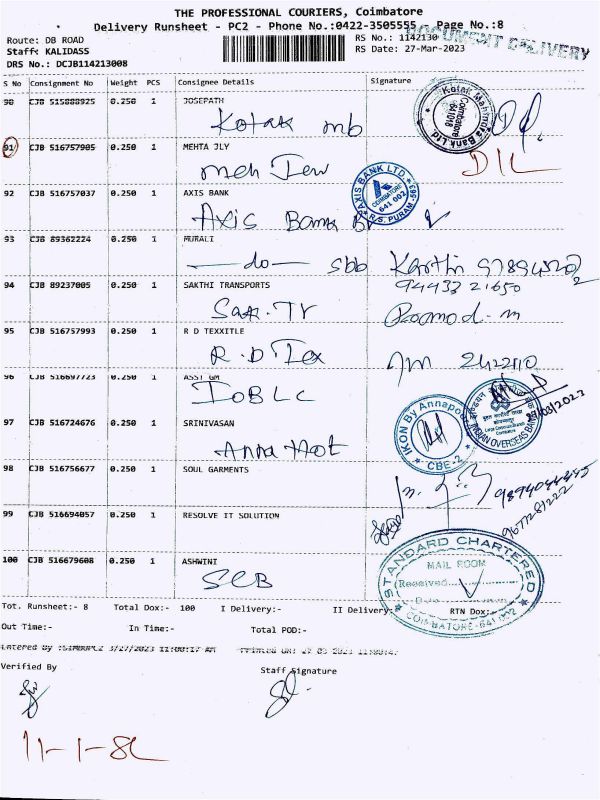 THE PROFESSIONAL COURIERS, Coimbatore
Delivery Runsheet - PC2 - Phone No.:0422-3505555 Page No.:8
Route: DB ROAD
RS No.: 1142130
DOCUMENT DELIVERY
Staff: KALIDASS
RS Date: 27-Mar-2023
DRS No.: DCJB114213008
S No Consignment No Weight PCS Consignee Details Signature
90 CJB 515888925 0.250 1 JOSEPATH
Kotak mb
Kotak Mahindra Bank Ltd
Coimbatore
641018
91 CJB 516757905 0.250 1 MEHTA JLY
meh Jew
DIL
92 CJB 516757037 0.250 1 AXIS BANK
Axis Bank Br
AXIS BANK LTD.
COIMBATORE
641 002
R.S. PURAM
93 CJB 89362224 0.250 1 MURALI
do Sbb Karthi
94 CJB 89237005 0.250 1 SAKTHI TRANSPORTS
94433 21650
Sak. Tr
95 CJB 516757993 0.250 1 R D TEXXITLE
R.D Tex
96 CJB 516697723 0.250 1 ASST GM
IOB LC
INDIAN OVERSEAS BANK
97 CJB 516724676 0.250 1 SRINIVASAN
Anna Hot
IKON By Annapoorna
CBE-2
98 CJB 516756677 0.250 1 SOUL GARMENTS
99 CJB 516694057 0.250 1 RESOLVE IT SOLUTION
100 CJB 516679608 0.250 1 ASHWINI
SCB
STANDARD CHARTERED
MAIL ROOM
Received
COIMBATORE-641 002
Tot. Runsheet:- 8 Total Dox:- 100 I Delivery:- II Delivery:- RTN Dox:-
Out Time:- In Time:- Total POD:-
3/27/2023 11:00:17 AM
Verified By Staff Signature